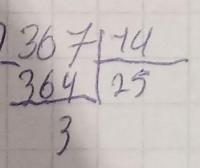 367 14
- 364 25
3